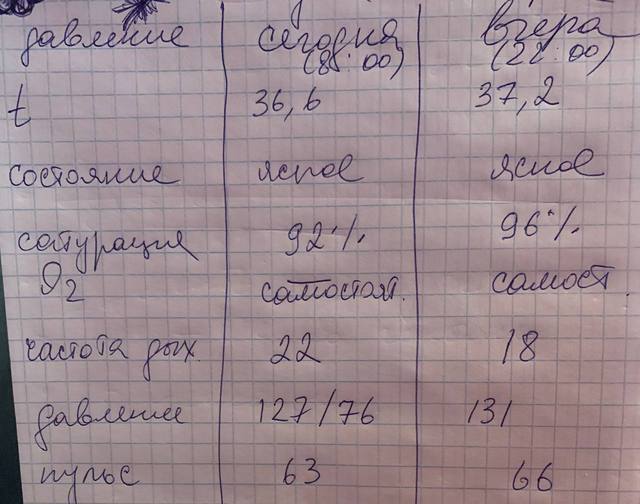 давление сегодня вчера
(8:00) (22:00)
t 36,6 37,2
состояние ясное ясное
сатурация 92% 96%
O2 самостоят. самост.
частота дых. 22 18
давление 127/76 131
пульс 63 66